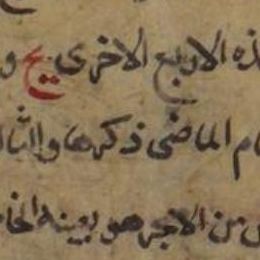 ذه الاربع الاخرى يح و
ام الماضى ذكرها والثا
من الاجر هو بعينه الخا